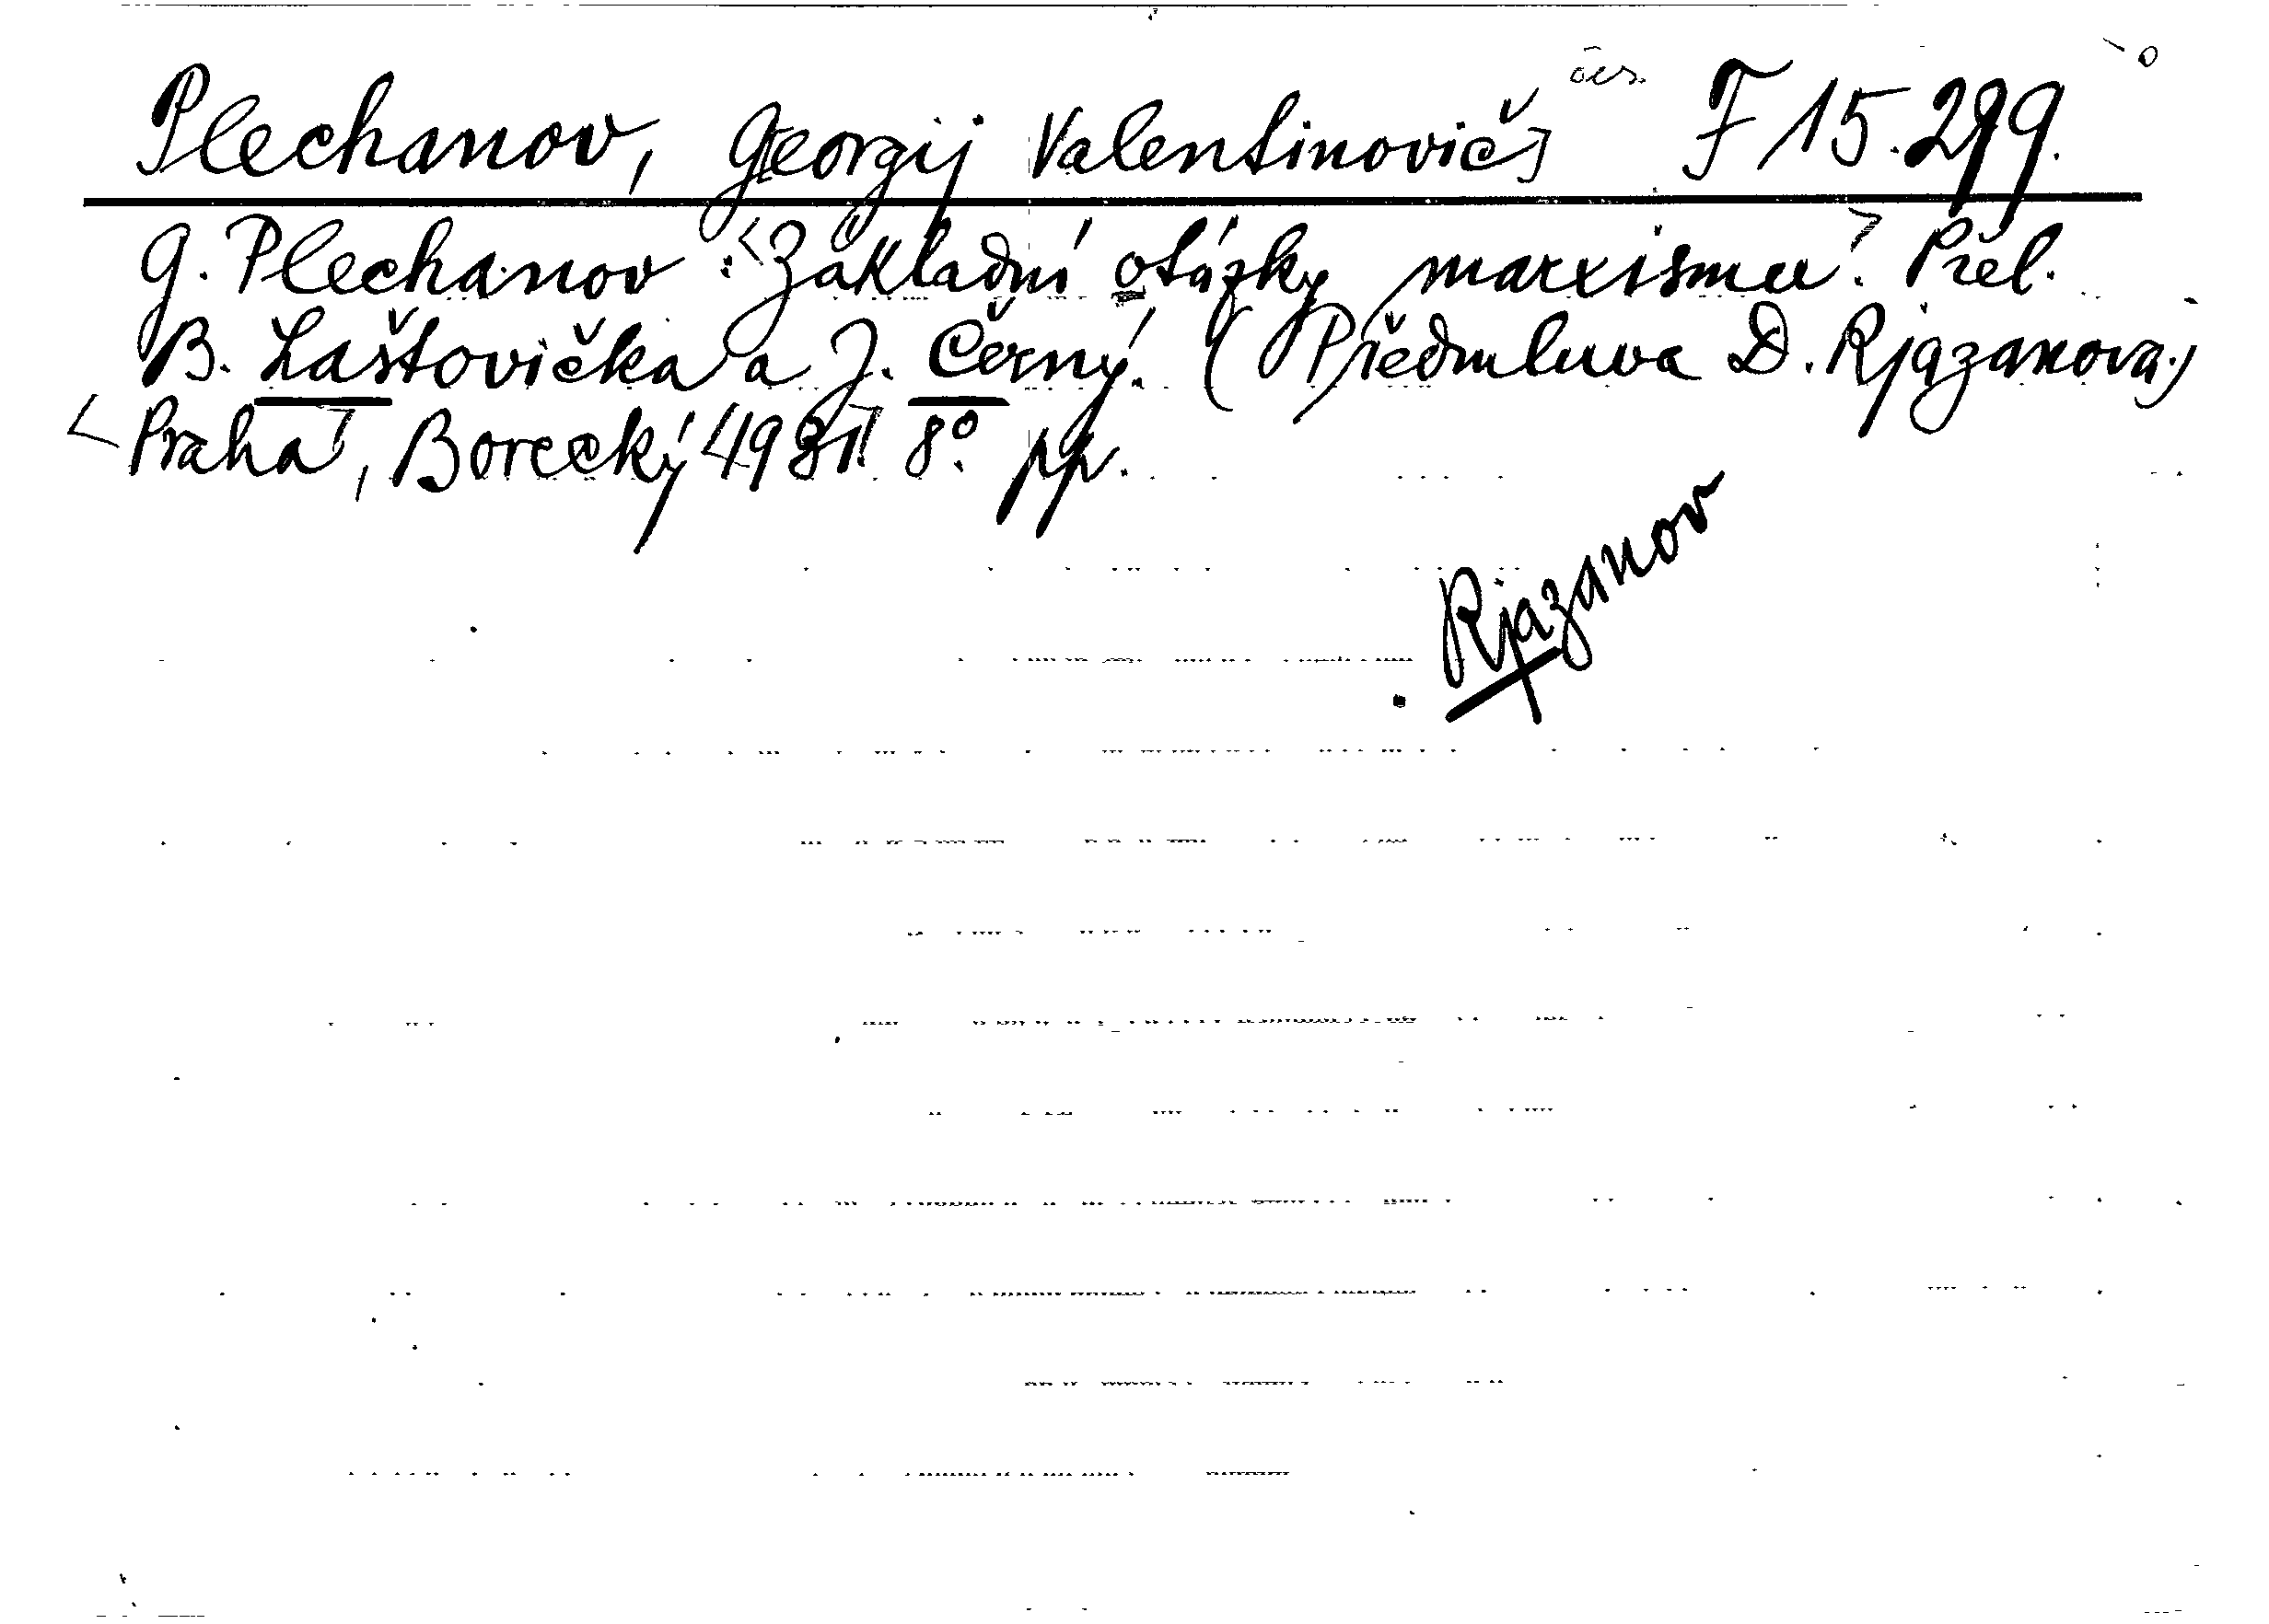 Plechanov, G[eorgij Valentinovič] čes. F 15.299.
G. Plechanov: <Základní otázky marxismu>. Přel.
B. Laštovička a J. Černý. (Předmluva D. Rjazanova.)
<Praha>, Borecký <1931>. 8°. pp.
Rjazanov